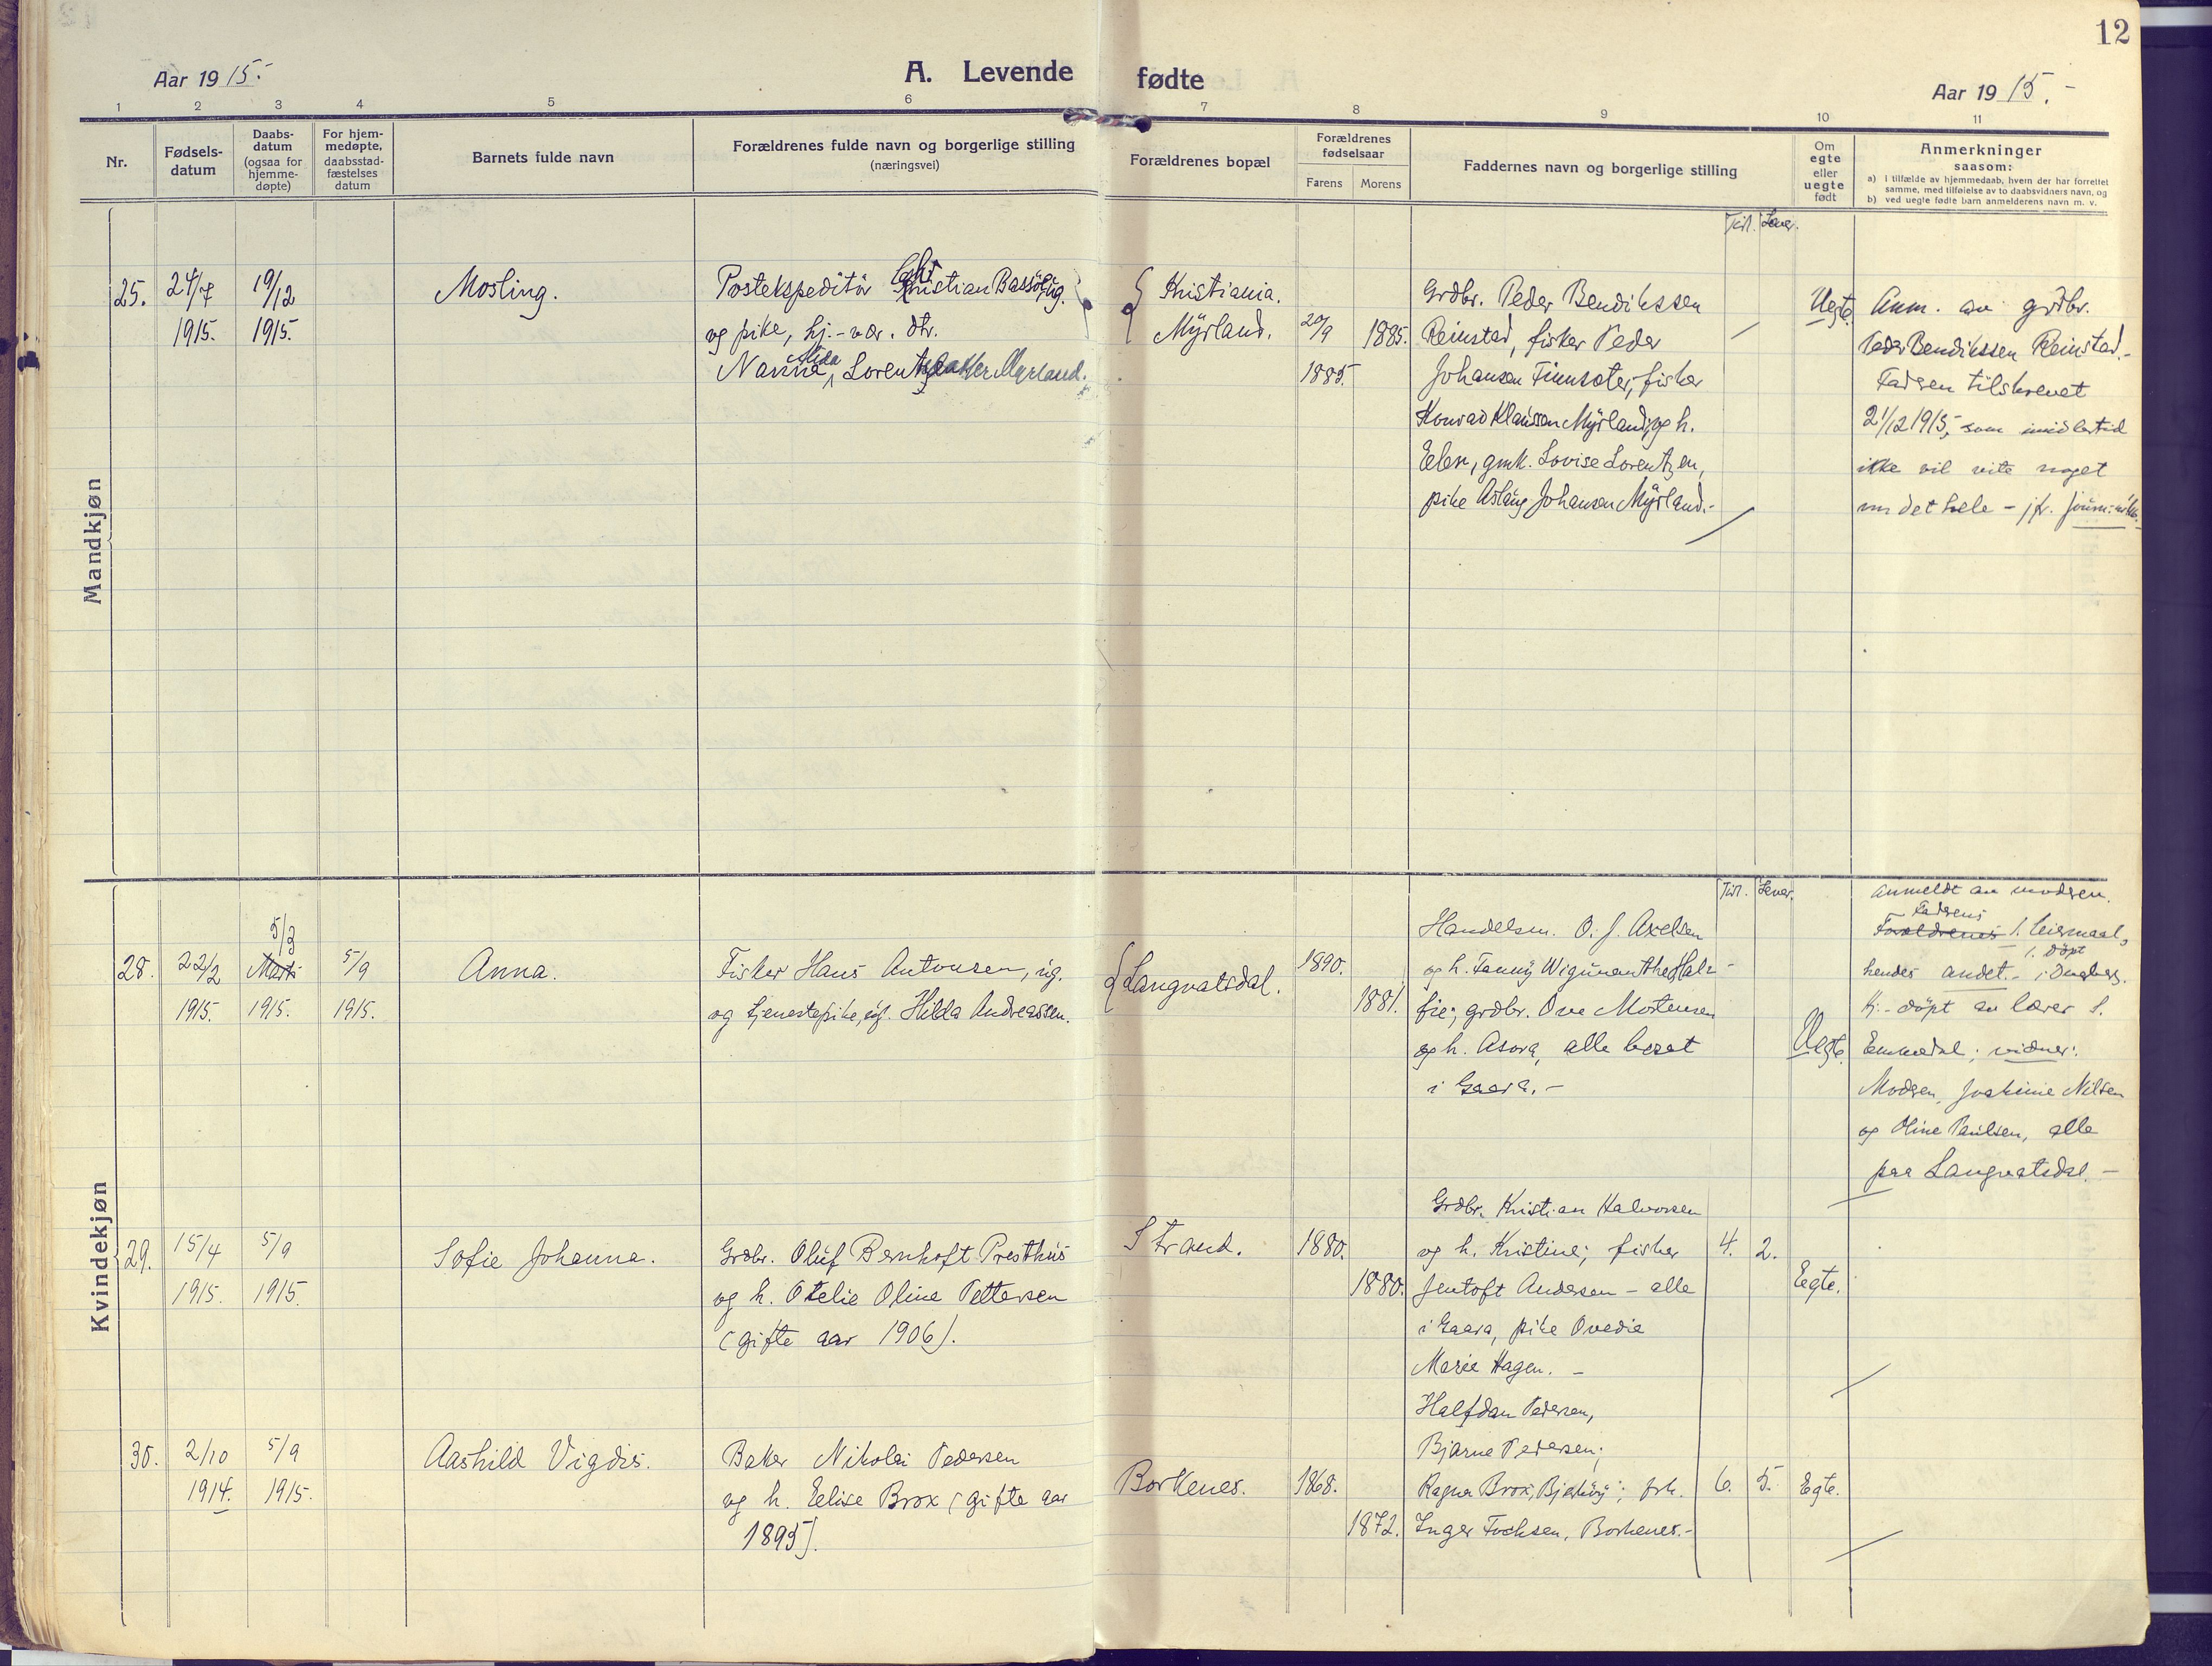 12
Aar 1915.-
A. Levende fødte
Aar 1915.-
1 2 3 4 5 6 7 8 9 10 11
Nr.
Fødsels-
datum
Daabs-
datum
(ogsaa for
hjemme-
døpte)
For hjem-
medøpte,
daabsstad-
fæstelses
datum
Barnets fulde navn
Forældrenes fulde navn og borgerlige stilling
(næringsvei)
Forældrenes bopæl
Forældrenes
fødselsaar
Farens Morens
Faddernes navn og borgerlige stilling
Om
egte
eller
uegte
født
Anmerkninger
saasom:
a) i tilfælde av hjemmedaab, hvem der har forrettet
samme, med tilføielse av to daabsvidners navn, og
b) ved uegte fødte barn anmelderens navn m. v.
Mandkjøn
Til. Lever.
25.
24/7
1915.
19/12
1915.
Mosling.
Postekspeditör Kristian Bassö, ug.
og pike, hj.-vær. dtr.
Nanna Alida Lorentzdatter Myrland.
Kristiania.
Myrland.
20/9
1885.
1885.
Grdbr. Peder Bendikssen
Reinstad, fisker Peder
Johansen Finnsæter, fisker
Konrad Klaussen Myrland, og h.
Ellen, gmk. Lovise Lorentzen,
pike Aslaug Johansen Myrland.-
Uegte.
Anm. av grdbr.
Peder Bendikssen Reinstad.-
Faderen tilskrevet
21/12 1915, som imidlertid
ikke vil vite noget
om det hele - jfr.
Kvindekjøn
Til. Lever.
28.
22/2
1915.
5/3
Marts
1915.
5/9
1915.
Anna.
Fisker Hans Antonsen, ug.
og tjenestepike, ug. Hilda Andreassen.
Langvatsdal.
1890.
1881.
Handelsm. O. J. Axelsen
og h. Fanny
grdbr. Ove Mortensen
og h. Asora, alle bosat
i Gaara.-
Uegte.
Anmeldt av moderen.
Faderens
Forældrenes 1. leiermaal,
1. döpt
hendes andet.-
Hj.-döpt av lærer S.
Emmedal; vidner:
Moderen, Joakime Nilsen
og Oline Paulsen, alle
paa Langvatsdal.-
29.
15/4
1915.
5/9
1915.
Sofie Johanna.
Grdbr. Oluf Bernhoft Presthus
og h. Otelie Oline Pettersen
(gifte aar 1906).
Strand.
1880.
1880.
Grdbr. Kristian Halvorsen
og h. Kristine; fisker
Jentoft Andersen - alle
i Gaara, pike Ovedie
Marie Hagen.-
4. 2.
Egte.
30.
2/10
1914.
5/9
1915.
Aashild Vigdis.
Baker Nikolai Pedersen
og h. Elise Brox (gifte aar
1895).
Borkenes.
1868.
1872.
Halfdan Pedersen,
Bjarne Pedersen;
Ragna Brox, ; frk.
Inger Fochsen, Borkenes.-
6. 5.
Egte.